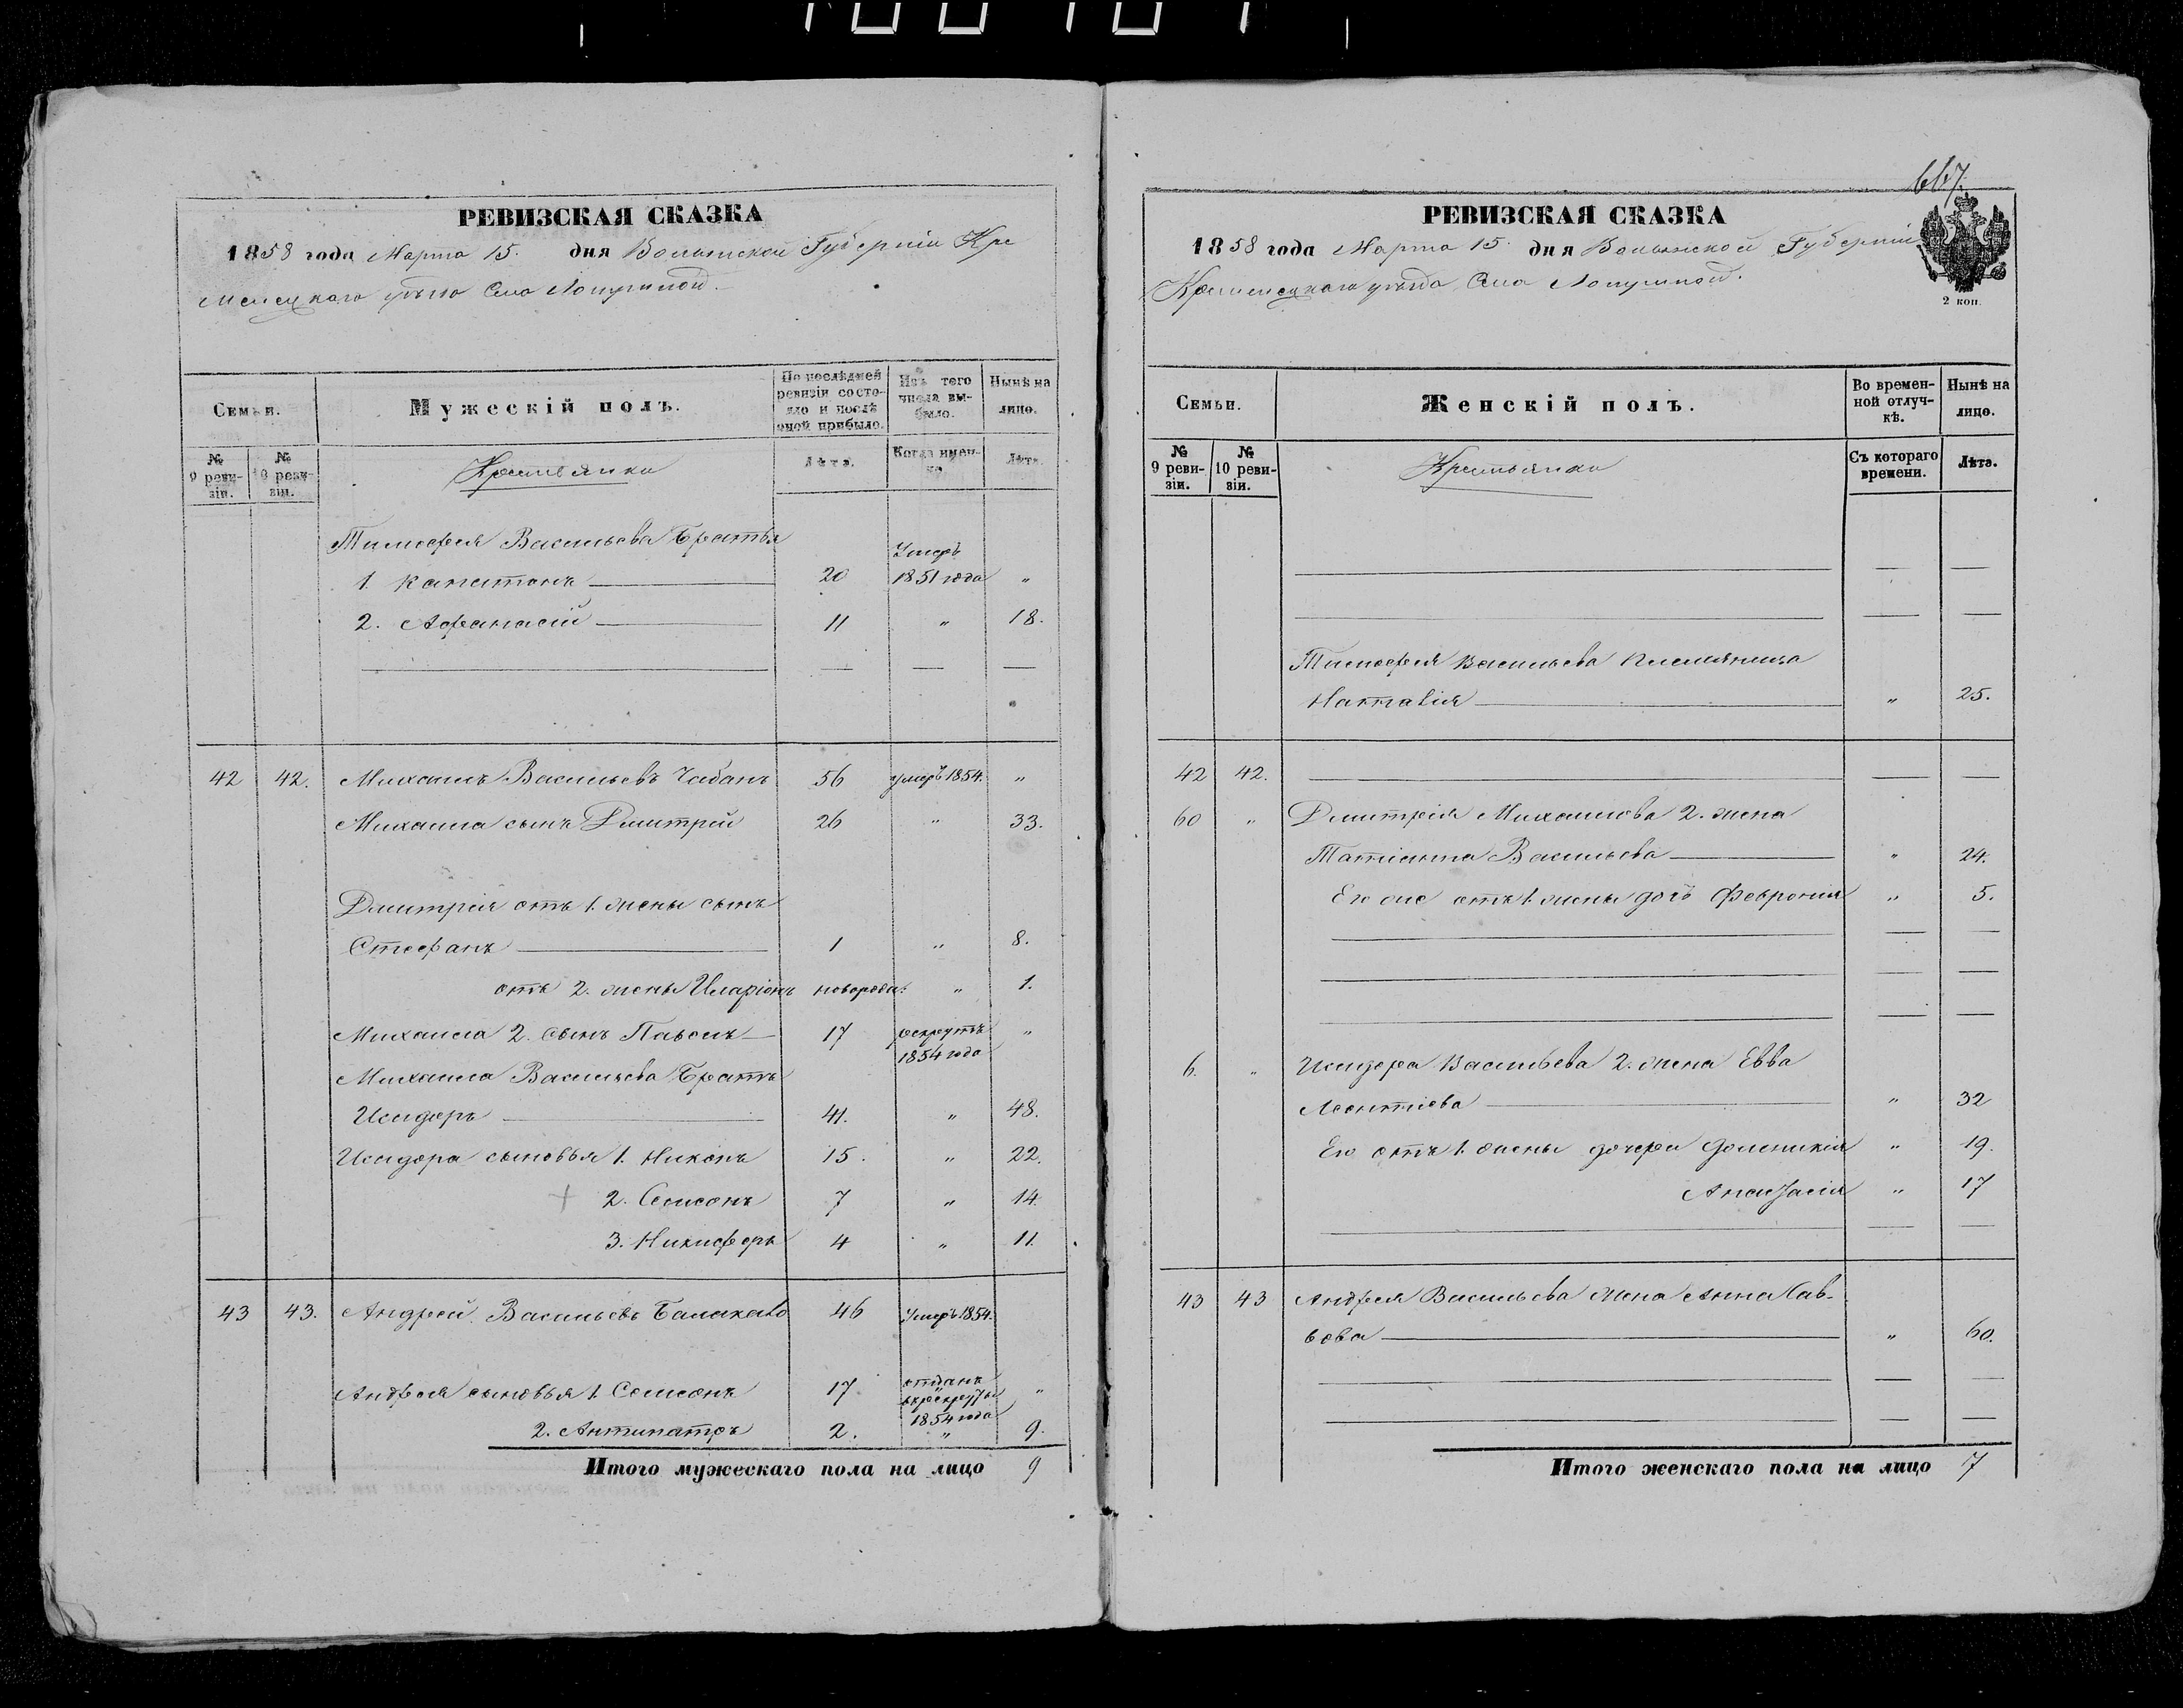 РЕВИЗСКАЯ СКАЗКА
1858 года Марта 15. дня Волынской Губерніи Кре
менецкаго уѣзда Села Лопушной.
Семьи.
Мужескій полъ.
По послѣдней ревизіи состояло и послѣ оной прибыло.
Изъ того числа выбыло.
Нынѣ на лицо.
№ 9 ревизіи.
№ 10 ревизіи.
Крестьянки
Лѣта.
Когда именно.
Лѣта.
Тимофея Васильева Братья
1. Капитонъ 20 Умеръ 1851 года "
2. Афанасій 11 " 18.
42 42. Михаилъ Васильевъ Чабанъ 56 умеръ 1854. "
Михаила сынъ Дмитрій 26 " 33.
Дмитрія отъ 1. жены сынъ
Стефанъ 1 " 8.
отъ 2. жены Иларіонъ новорожд: " 1.
Михаила 2. сынъ Павелъ 17 рекрутъ 1854 года "
Михаила Васильева Братъ
Исидоръ 41. " 48.
Исидора сыновья 1. Никонъ 15. " 22.
2. Семионъ 7 " 14.
3. Никифоръ 4 " 11.
43 43. Андрей Васильевъ 46 Умеръ 1854.
Андрея сыновья 1. Семионъ 17 отданъ въ рекруты 1854 года "
2. Антипатръ 2. " 9.
Итого мужескаго пола на лицо 9
667.
РЕВИЗСКАЯ СКАЗКА
1858 года Марта 15. дня Волынской Губерніи
Кременецкаго уѣзда Села Лопушной.
2 коп.
Семьи.
Женскій полъ.
Во временной отлучкѣ.
Нынѣ на лицо.
№ 9 ревизіи.
№ 10 ревизіи.
Крестьянки
Съ котораго времени.
Лѣта.
Тимофея Васильева племяница
Наталія " 25.
42 42.
60 " Дмитрія Михаилова 2. жена
Татіанна Васильева " 24.
Его же отъ 1. жены дочь Феврония " 5.
6. " Исидора Васильева 2. жена Евва
Леонтіева " 32
Его отъ 1. жены дочери Доминикія " 19.
Анастасія " 17
43 43 Андрея Васильева жена Анна Сав-
вова " 60.
Итого женскаго пола на лицо 7